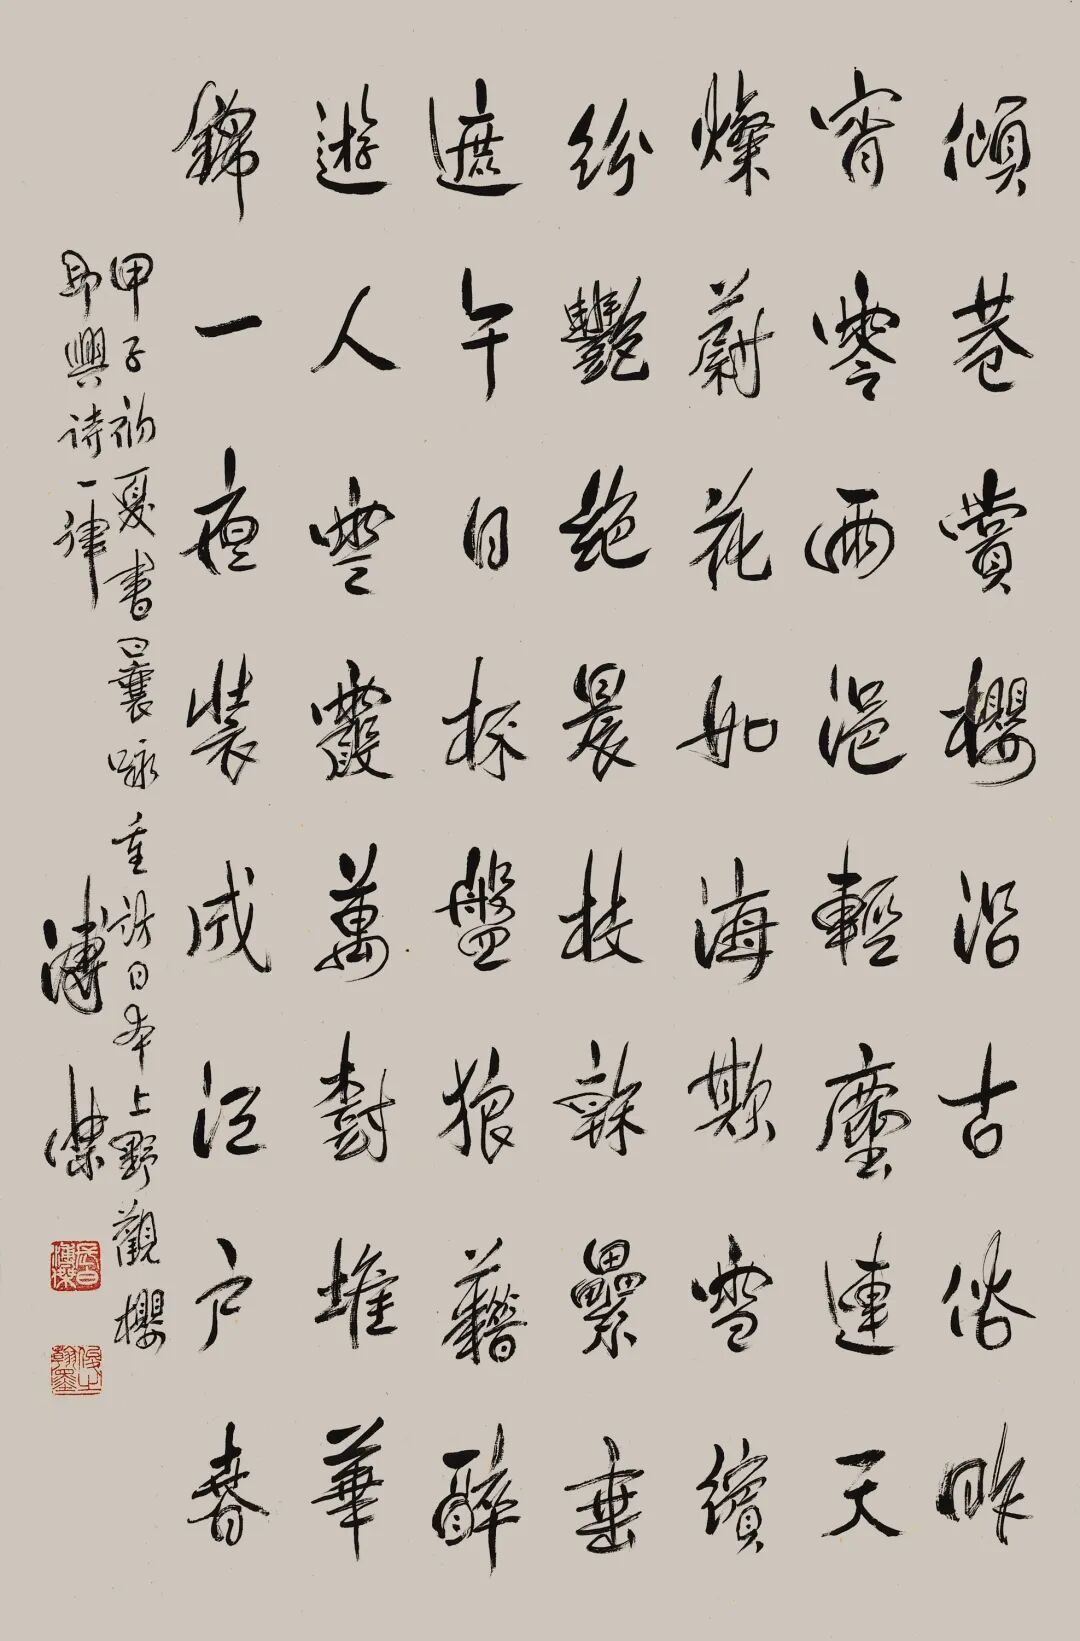 傾巷賞櫻沿古俗昨
宵零雨浥輕塵連天
燦蔚花如海欺雪繽
紛艷絕晨枝纍垂
遮午日杯盤狼藉醉
遊人雲霞萬樹堆華
錦一夜裝成江户春
甲子初夏書曩咏重訪日本上野觀櫻
即興诗一律
溥傑